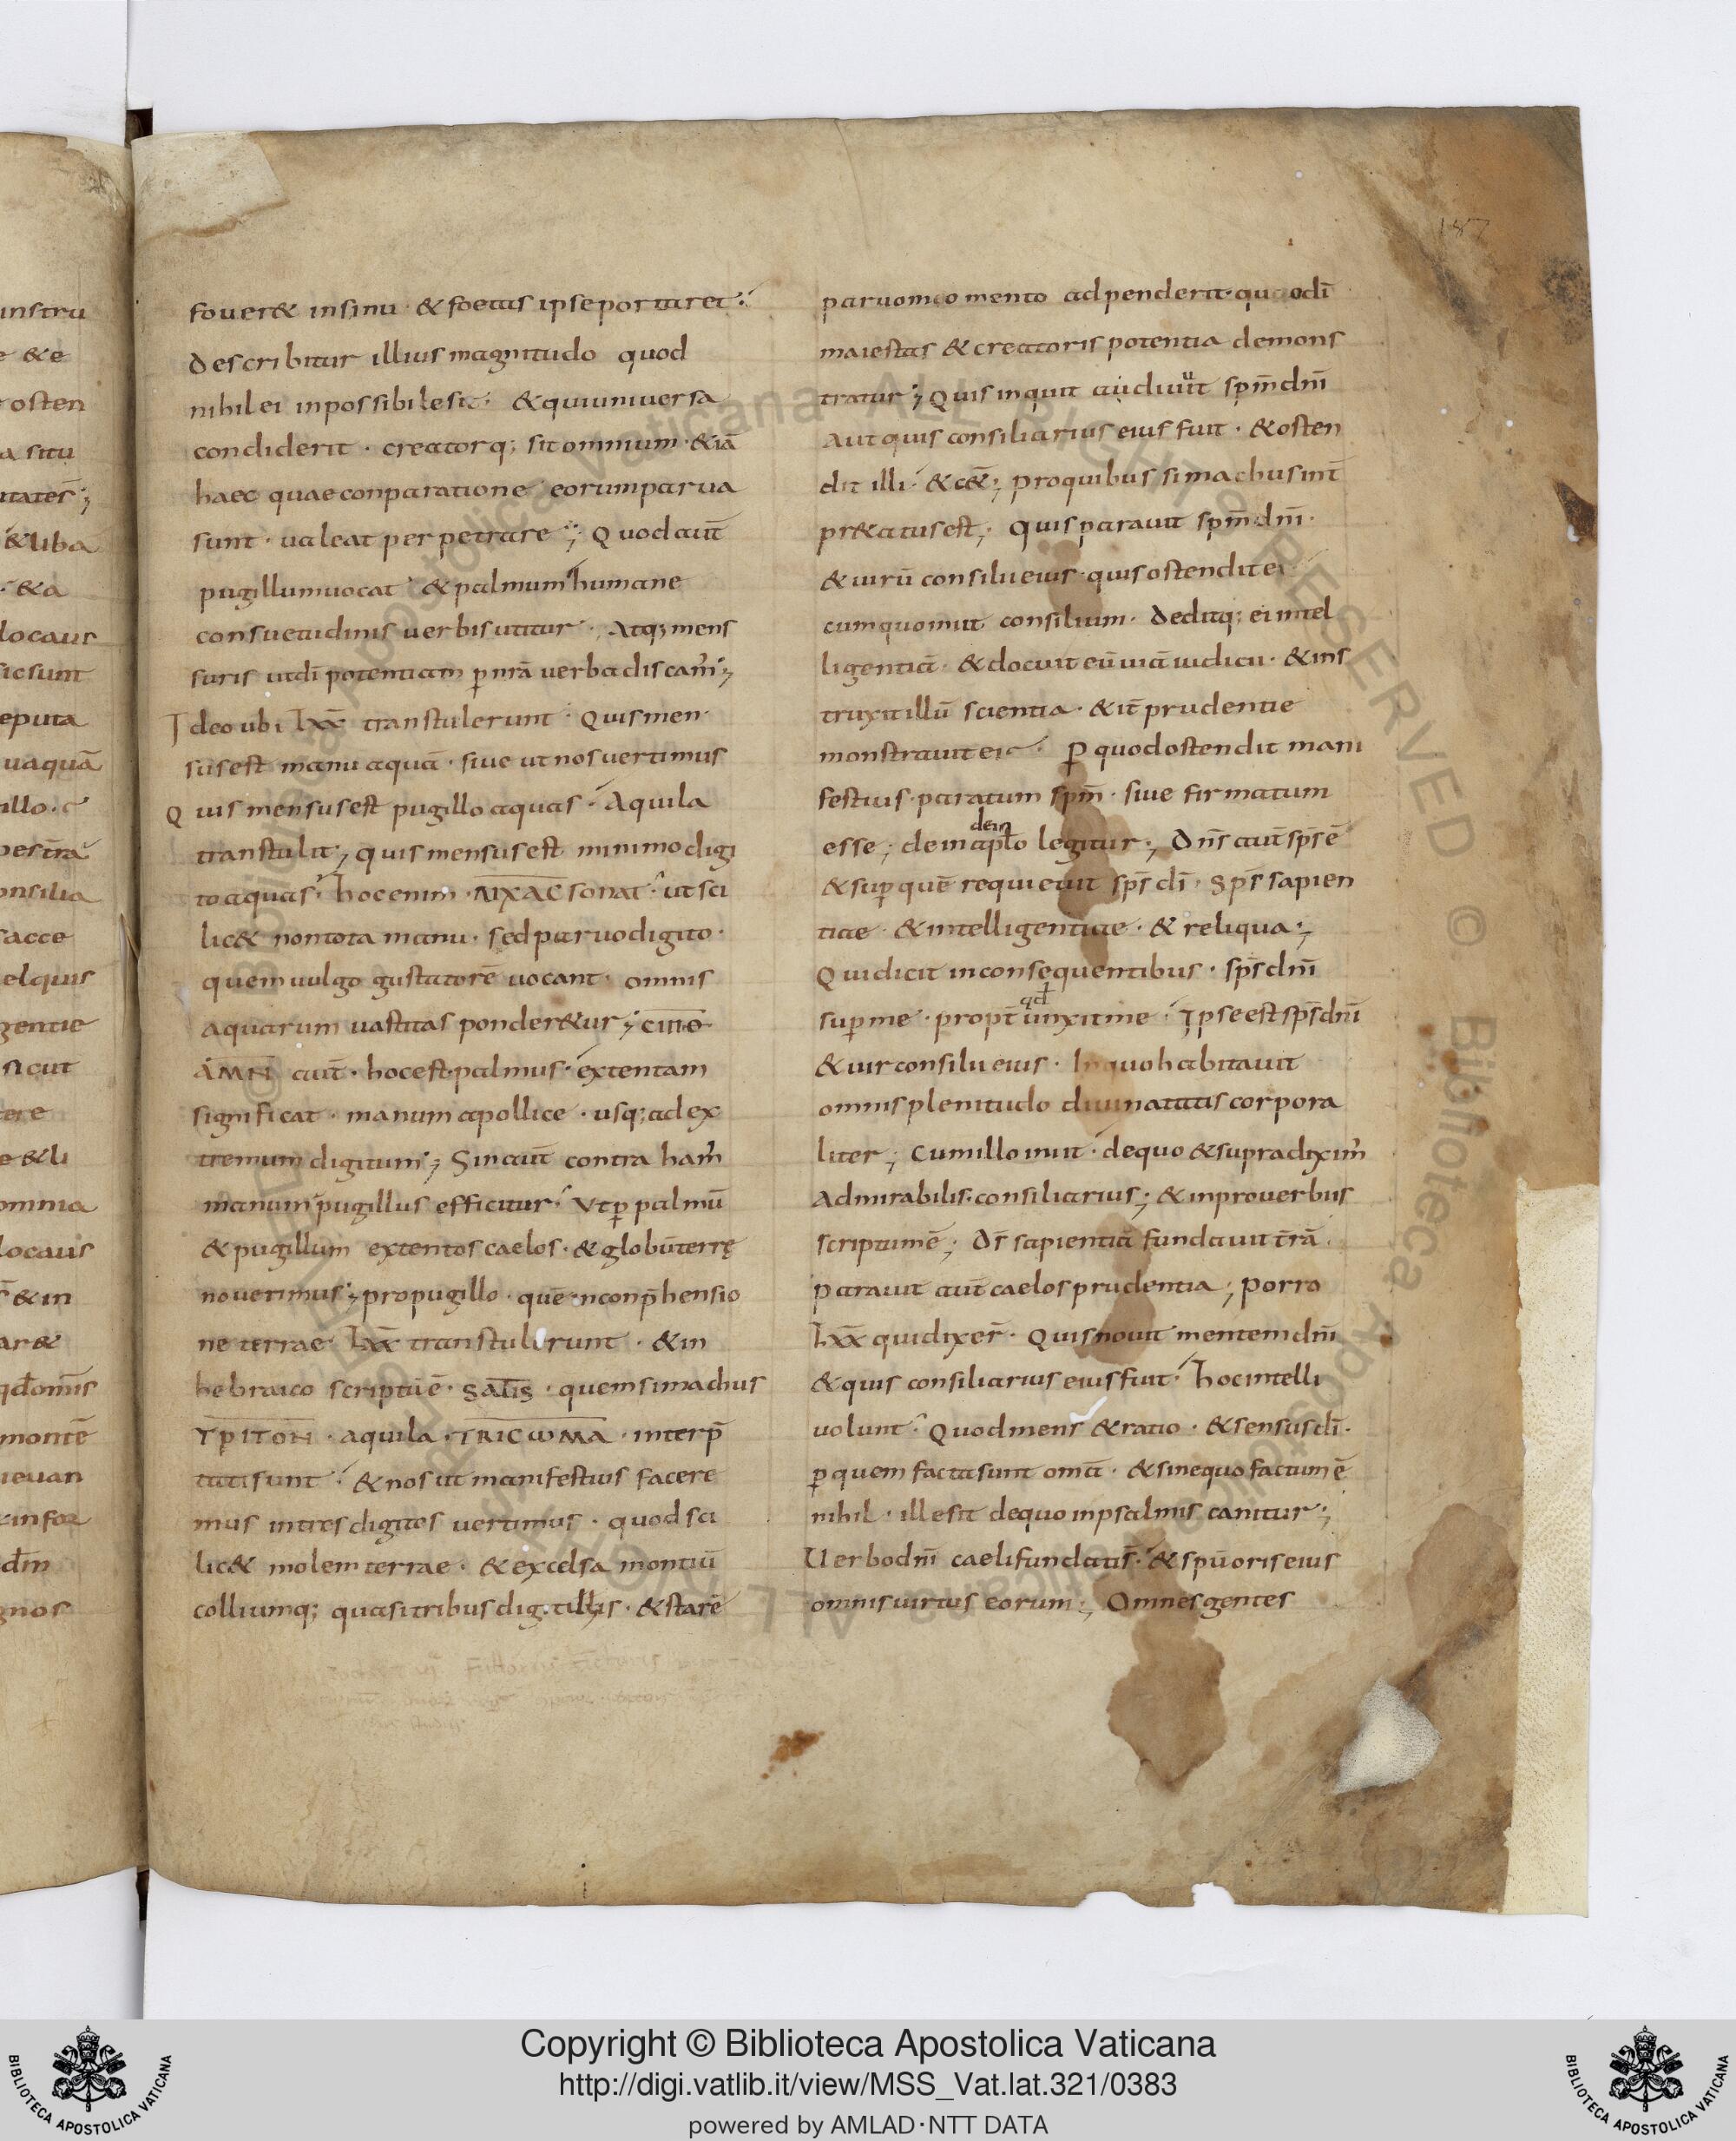 instru
&e
osten
a situ
utates;
&liba
&a
locaur
sicsunt
eputa
uaquā
illo.
pestrā
onsilia
sacce
elquis
gentie
sicut
tere
e &li
omnia
locaus
& in
ar&
qdomīs
montē
ieuan
infor
dm̄
gnos
fouer& insinu · & foetus ipseportaret ·
describitur illius magnitudo quod
nihilei inpossibilesit · & quiuniuersa
condiderit · creatorq; sitomnium · &iā
haec quaeconparatione eorumparua
sunt · ualeat perpetrare ; Quodaut̄
pugillumuocat · & palmum humane
consuetudinis uerbisutitur · Atq; mens
suris utdī potentiam p nr̄a uerbadiscam̄ ;
Ideoubi lxx̄ transtulerunt · Quismen
susest manuaquā · siue utnosuertimus
Quis mensusest pugilloaquas · Aquila
transtulit ; quismensusest minimodigi
toaquas · hocenim · ΛIXAC sonat · utsci
lic& nontotamanu · sedparuodigito ·
quemuulgo gustatorē uocant · omnis
aquarum uastitas ponder&ur ;
aut̄ · hocest · palmus · extentam
significat · manumapollice · usq; adex
tremumdigitum ; Sinaut̄ contraham̄
manum pugillus efficitur · Utp palmū
& pugillum extentoscaelos · & globūterrę
nouerimus ; propugillo · quē inconp̄hensio
ne terrae lxx̄ transtulerunt · & in
hebraico scriptūē · salis · quemsimachus
ΥΡΙΤΟΝ · aquila · TRICωMA · interp̄
tatisunt · & nosut manifestius facere
mus intresdigitos uertimus · quodsci
lic& molemterrae · & excelsa montiū
colliumq; quasitribusdigitillis · & starē
187
paruomomento adpenderit · quodī
maiestas & creatoris potentia demons
tratur ; Quis inquit audiuit spm̄ dnī
Aut quis consiliarius eius fuit · & osten
dit illi · & c&̄ ; proquibus simachusint̄
pr&atusest ; Quisparauit spm̄ dnī ·
& uirū consilii eius · quisostenditei
cumquomiit consilium · deditq; eiintel
ligentiā · & docuit eūuiā iudicii · & ins
truxitillū scientia · & it̄ prudentie
monstrauit ei · p quodostendit mani
festius · paratum spm̄ · siue firmatum
dein
esse ; deinapłto legitur ; Dn̄s aut̄ sps̄ ē
& sup quē requieuit sps̄ dī · sps̄ sapien
tiae · & intelligentiae · & reliqua ;
Quidicit inconsequentibus · sps̄ dnī
qd
supme · propt̄ unxitme · Ipseestsps̄ dnī
& uirconsilii eius · Inquohabitauit
omnisplenitudo diuinatatis corpora
liter ; cumilloiniit · dequo & supradixim̄
admirabilis · consiliarius ; & inprouerbiis
scriptumē ; Ds̄ sapientiā fundauit tr̄ā ·
parauit aut̄ caelosprudentia ; porro
lxx̄ quidixer̄ · Quisnouit mentemdnī
& quis consiliarius eiusfuit · hocintelli
uolunt · Quodmens & ratio · & sensusdī ·
p quem factasunt omā · & sinequofactumē
nihil · illesit dequoinpsalmis canitur ;
Uerbodnī caelifundatis̄ · & spū oriseius
omnisuirtus eorum ; Omnesgentes
Copyright © Biblioteca Apostolica Vaticana
http://digi.vatlib.it/view/MSS_Vat.lat.321/0383
powered by AMLAD·NTT DATA
BIBLIOTECA APOSTOLICA VATICANA
BIBLIOTECA APOSTOLICA VATICANA